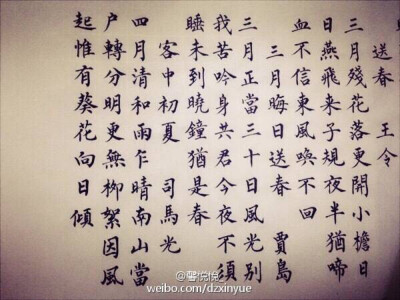 送春 王令
三月殘花落更開小檐日
日燕飛来子規夜半猶啼
血不信東風喚不回
三月晦日送春 賈島
三月正當三十日風光別
我苦吟身共君今夜不須
睡未到曉鐘猶是春
客中初夏 司馬光
四月清和雨乍晴南山當
户轉分明更無柳絮因風
起惟有葵花向日傾
@馨悦悦
weibo.com/dzxinyue